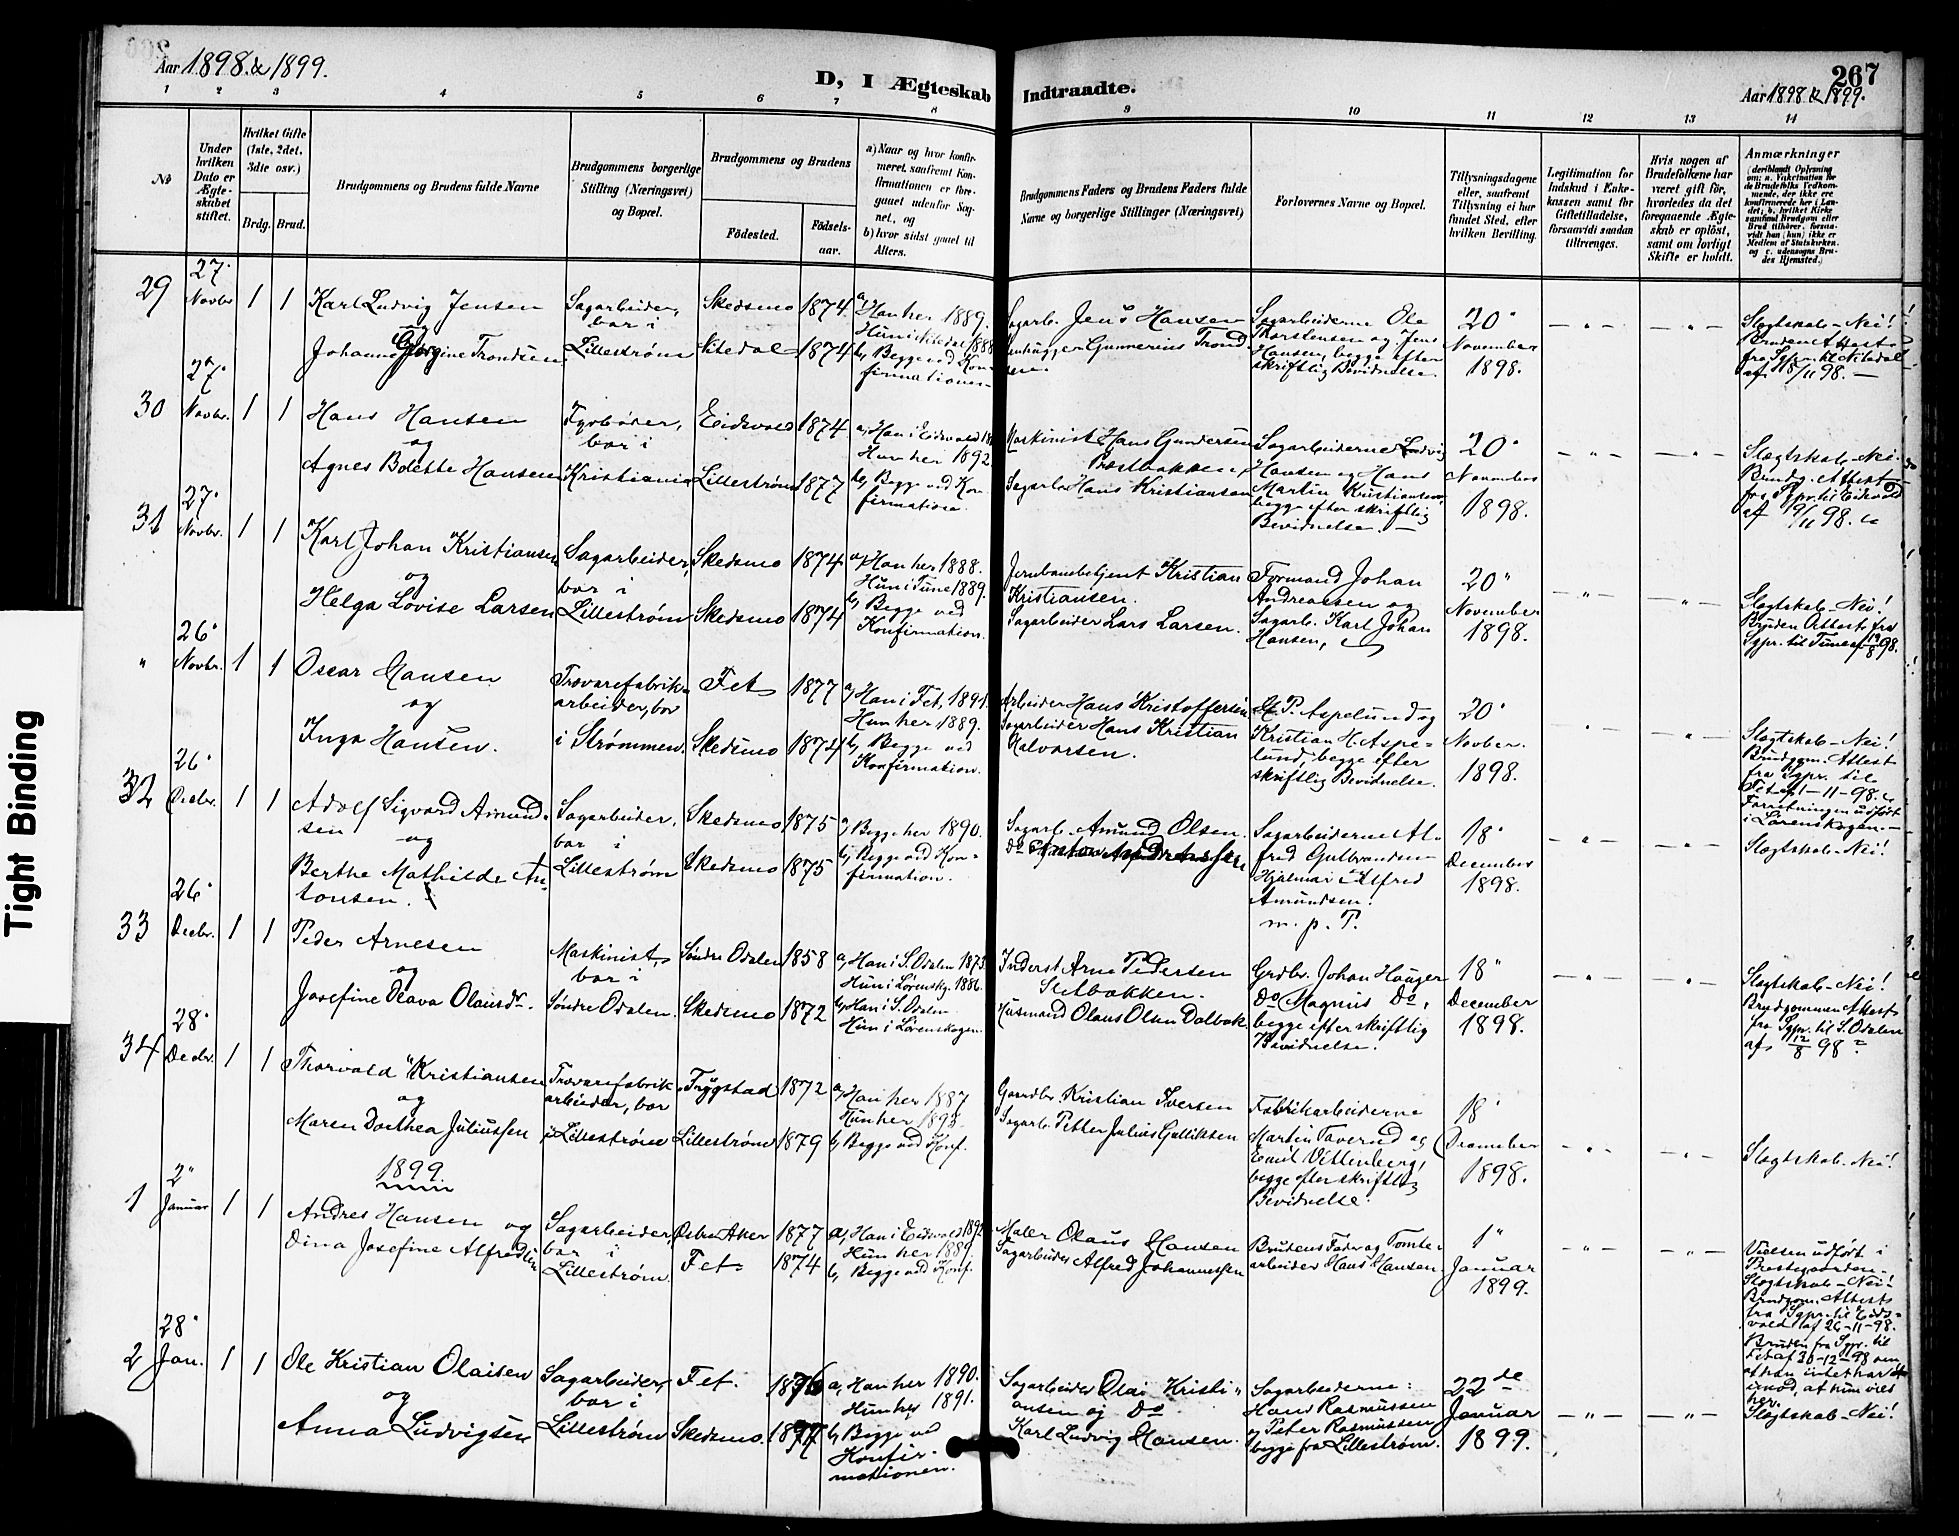 Aar 1898 & 1899.
D, I Ægteskab Indtraadte.
267
Aar 1898 & 1899.
1 2 3 4 5 6 7 8 9 10 11 12 13 14
№
Under hvilken Dato er Ægteskabet stiftet.
Hvilket Gifte (1ste, 2det, 3die osv.)
Brdg. Brud.
Brudgommens og Brudens fulde Navne
Brudgommens borgerlige Stilling (Næringsvei) og Bopæl.
Brudgommens og Brudens
Födested.
Födsels-aar.
a) Naar og hvor konfirmeret, saafremt Konfirmationen er foregaaet udenfor Sognet, og
b) hvor sidst gaaet til Alters.
Brudgommens Faders og Brudens Faders fulde Navne og borgerlige Stillinger (Næringsvei)
Forlovernes Navne og Bopæl.
Tillysningsdagene eller, saafremt Tillysning ei har fundet Sted, efter hvilken Bevilling.
Legitimation for Indskud i Enkekassen samt for Giftetilladelse, forsaavidt saadan tiltrænges.
Hvis nogen af Brudefolkene har været gift för, hvorledes da det foregaaende Ægteskab er oplöst, samt om lovligt Skifte er holdt.
Anmærkninger
29 27. Novbr 1 1 Karl Ludvig Jensen
Johanne Gurgine Trondsen
Sagarbeider, bor i Lillestrøm
Skedsmo 1874
Nitedal 1874
a, Han her 1889.
Hun i Nitedal 1888
b, Begge ved Konfirmationen
Sagarb. Jens Hansen
Gunnerius Trondsen.
Sagarbeiderne Ole Thorstensen og Jens Hansen, begge efter skriftlig Bevidnelse.
20. November 1898.
Slægtskab - Nei!
Bruden Attest fra Sgpr. til Nitedal af 18/11 98.
30 27. Novbr. 1 1 Hans Hansen
og
Agnes Bolette Hansen
Fyrbøder, bor i Kristiania
Eidsvold 1874
Lillestrøm 1877
a, Han i Eidsvold
Hun her 1892
b, Begge ved Konfirmation.
Maskinist Hans Gundersen Præstbakken,
Sagarb. Hans Kristiansen
Sagarbeiderne Ludvig Hansen og Hans Martin Kristiansen begge efter skriftlig Bevidnelse.
20. November 1898.
Slægtskab - Nei.
Brudg. Attest fra Sgpr. til Eidsvold af 19/11 98.
31 27. Novbr. 1 1 Karl Johan Kristiansen
og
Helga Lovise Larsen
Sagarbeider, bor i Lillestrøm
Skedsmo 1874
Skedsmo 1874
a, Han her 1888.
Hun i Tune 1889.
b, Begge ved Konfirmation.
Jernbanebetjent Kristian Kristiansen.
Sagarbeider Lars Larsen.
Formand Johan Andreassen og
Sagarb. Karl Johan Hansen,
20. November 1898.
Slægtskab - Nei!
Bruden Attest fra Sgpr. til Tune af 19/8 98.
" 26. Novbr. 1 1 Oscar Hansen
og
Inga Hansen.
Trævarefabrikarbeider, bor i Strømmen.
Fet 1877
Skedsmo 1874
a, Han i Fet, 1891.
Hun her 1889.
b, Begge ved Konfirmation.
Arbeider Hans Kristoffersen
Sagarbeider Hans Kristian Halvorsen.
P. Aspelund og Kristian H. Aspelund, begge efter skriftlig Bevidnelse.
20. Novber. 1898.
Slægtskab - Nei!
Brudgom. Attest fra Sgpr. til Fet af 1-11-98.
Forretningen udført i Lørenskogen.
32 26. Decbr. 1 1 Adolf Sigvard Amundsen
og
Berthe Mathilde Antonsen.
Sagarbeider, bor i Lillestrøm
Skedsmo 1875
Skedsmo 1875
a, Begge her 1890.
b, Begge ved Konfirmation.
Sagarb. Amund Olsen.
Do Anton Andreassen
Sagarbeiderne Alfred Gulbrandsen
Hjalmar Alfred Amundsen.
m. p. P.
18. December 1898.
Slægtskab - Nei!
33 26. Decbr. 1 1 Peder Arnesen
og
Josefine Olava Olausdr.
Maskinist, bor i Søndre Odalen.
Søndre Odalen 1858
Skedsmo 1872
a, Han i S. Odalen 1873
Hun i Lørenskg. 1886.
b, Han i S. Odalen.
Hun i Lørenskogen.
Inderst Arne Pedersen Sletbakken.
Husmand Olaus Olsen Dalbak.
Grdbr. Johan Hauger
Do Magnus Do,
begge efter skriftlig Bevidnelse.
18. December 1898.
Slægtskab - Nei!
Brudgommen Attest fra Sgpr. til S. Odalen af 12/8 98.
34 28. Decbr. 1 1 Thorvald Kristiansen
og
Maren Dorthea Juliussen
Trævarefabrikarbeider, bor i Lillestrøm
Trygstad 1872
Lillestrøm 1879
a, Han her 1887
Hun her 1893.
b, Begge ved Konf.
Gaardbr. Kristian Iversen
Sagarb. Petter Julius Gulliksen
Fabrikarbeiderne Martin Taverud og Emil Vittenberg, begge efter skriftlig Bevidnelse.
18. December 1898.
Slægtskab - Nei!
1899.
1 2. Januar 1 1 Andres Hansen og
Dina Josefine Alfredsen
Sagarbeider, bor i Lillestrøm
Østre Aker 1877
Fet 1874
a, Han i Eidsvold 1892
Hun her 1889.
b, Begge ved Konf.
Maler Olaus Hansen
Sagarbeider Alfred Johannessen
Brudens Fader og Tomtearbeider Hans Hansen.
1. Januar 1899.
Vielsen udført i Præstegaarden.
Slægtskab - Nei!
Brudgom. Attest fra Sgpr. til Eidsvold af 26-11-98.
Bruden fra Sgpr. til Fet af 30-12-98 om, at han intet har imod, at hun vies her.
2 28. Jan. 1 1 Ole Kristian Olaisen
og
Anna Ludvigsen
Sagarbeider, bor i Lillestrøm
Fet. 1876
Skedsmo 1877
a, Han her 1890.
Hun her 1891.
b, Begge ved Konfirmationen.
Sagarbeider Olai Kristiansen og Do
Karl Ludvig Hansen.
Sagarbeiderne: Hans Rasmussen og Peter Rasmussen begge fra Lillestrøm.
22de Januar 1899.
Slægtskab - Nei!
Tight Binding